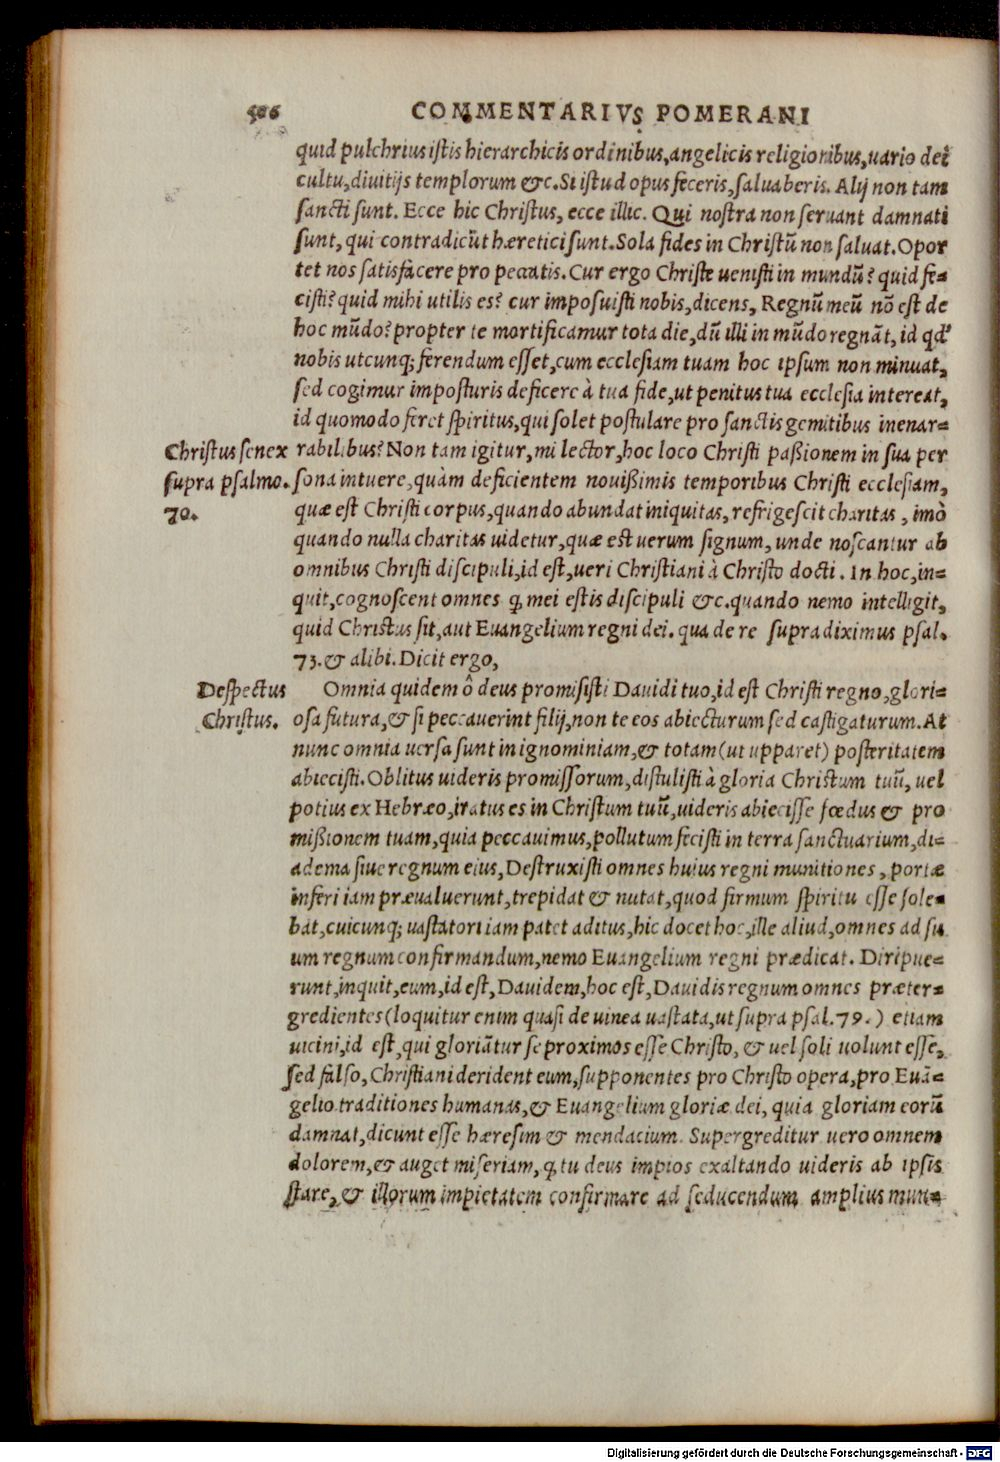 506 COMMENTARIVS POMERANI
quid pulchrius istis hierarchicis ordinibus, angelicis religionibus, uario dei
cultu, diuitijs templorum &c. Si istud opus feceris, saluaberis. Alij non tam
sancti sunt. Ecce hic Christus, ecce illic. Qui nostra non seruant damnati
sunt, qui contradicūt hæretici sunt. Sola fides in Christū non saluat. Opor
tet nos satisfacere pro peccatis. Cur ergo Christe uenisti in mundū? quid fe-
cisti? quid mihi utilis es? cur imposuisti nobis, dicens, Regnū meū nō est de
hoc mūdo? propter te mortificamur tota die, dū illi in mūdo regnāt, id qđ
nobis utcunq; ferendum esset, cum ecclesiam tuam hoc ipsum non minuat,
sed cogimur imposturis deficere à tua fide, ut penitus tua ecclesia intereat,
id quomodo feret spiritus, qui solet postulare pro sanctis gemitibus inenar-
Christus senex rabilibus? Non tam igitur, mi lector, hoc loco Christi paßionem in sua per
supra psalmo. sona intuere, quàm deficientem nouißimis temporibus Christi ecclesiam,
70. quæ est Christi corpus, quando abundat iniquitas, refrigescit charitas, imò
quando nulla charitas uidetur, quæ est uerum signum, unde noscantur ab
omnibus Christi discipuli, id est, ueri Christiani à Christo docti. In hoc, in-
quit, cognoscent omnes q̨ mei estis discipuli &c. quando nemo intelligit,
quid Christus sit, aut Euangelium regni dei. qua de re supra diximus psal.
73. & alibi. Dicit ergo,
Despectus Omnia quidem ô deus promisisti Dauidi tuo, id est Christi regno, glori-
Christus. osa futura, & si peccauerint filij, non te eos abiecturum sed castigaturum. At
nunc omnia uersa sunt in ignominiam, & totam (ut apparet) posteritatem
abiecisti. Oblitus uideris promissorum, distulisti à gloria Christum tuū, uel
potius ex Hebræo, iratus es in Christum tuū, uideris abiecisse fœdus & pro
mißionem tuam, quia peccauimus, pollutum fecisti in terra sanctuarium, di-
adema siue regnum eius, Destruxisti omnes huius regni munitiones, portæ
inferi iam præualuerunt, trepidat & nutat, quod firmum spiritu esse sole-
bat, cuicunq; uastatori iam patet aditus, hic docet hoc, ille aliud, omnes ad su
um regnum confirmandum, nemo Euangelium regni prædicat. Diripue-
runt, inquit, eum, id est, Dauidem, hoc est, Dauidis regnum omnes præter-
gredientes (loquitur enim quasi de uinea uastata, ut supra psal. 79.) etiam
uicini, id est, qui gloriātur se proximos esse Christo, & uel soli uolunt esse,
sed falso, Christiani derident eum, supponentes pro Christo opera, pro Euā-
gelio traditiones humanas, & Euangelium gloriæ dei, quia gloriam eorū
damnat, dicunt esse hæresim & mendacium. Supergreditur uero omnem
dolorem, & auget miseriam, q̨ tu deus impios exaltando uideris ab ipsis
stare, & illorum impietatem confirmare ad seducendum amplius mun-
Digitalisierung gefördert durch die Deutsche Forschungsgemeinschaft - DFG